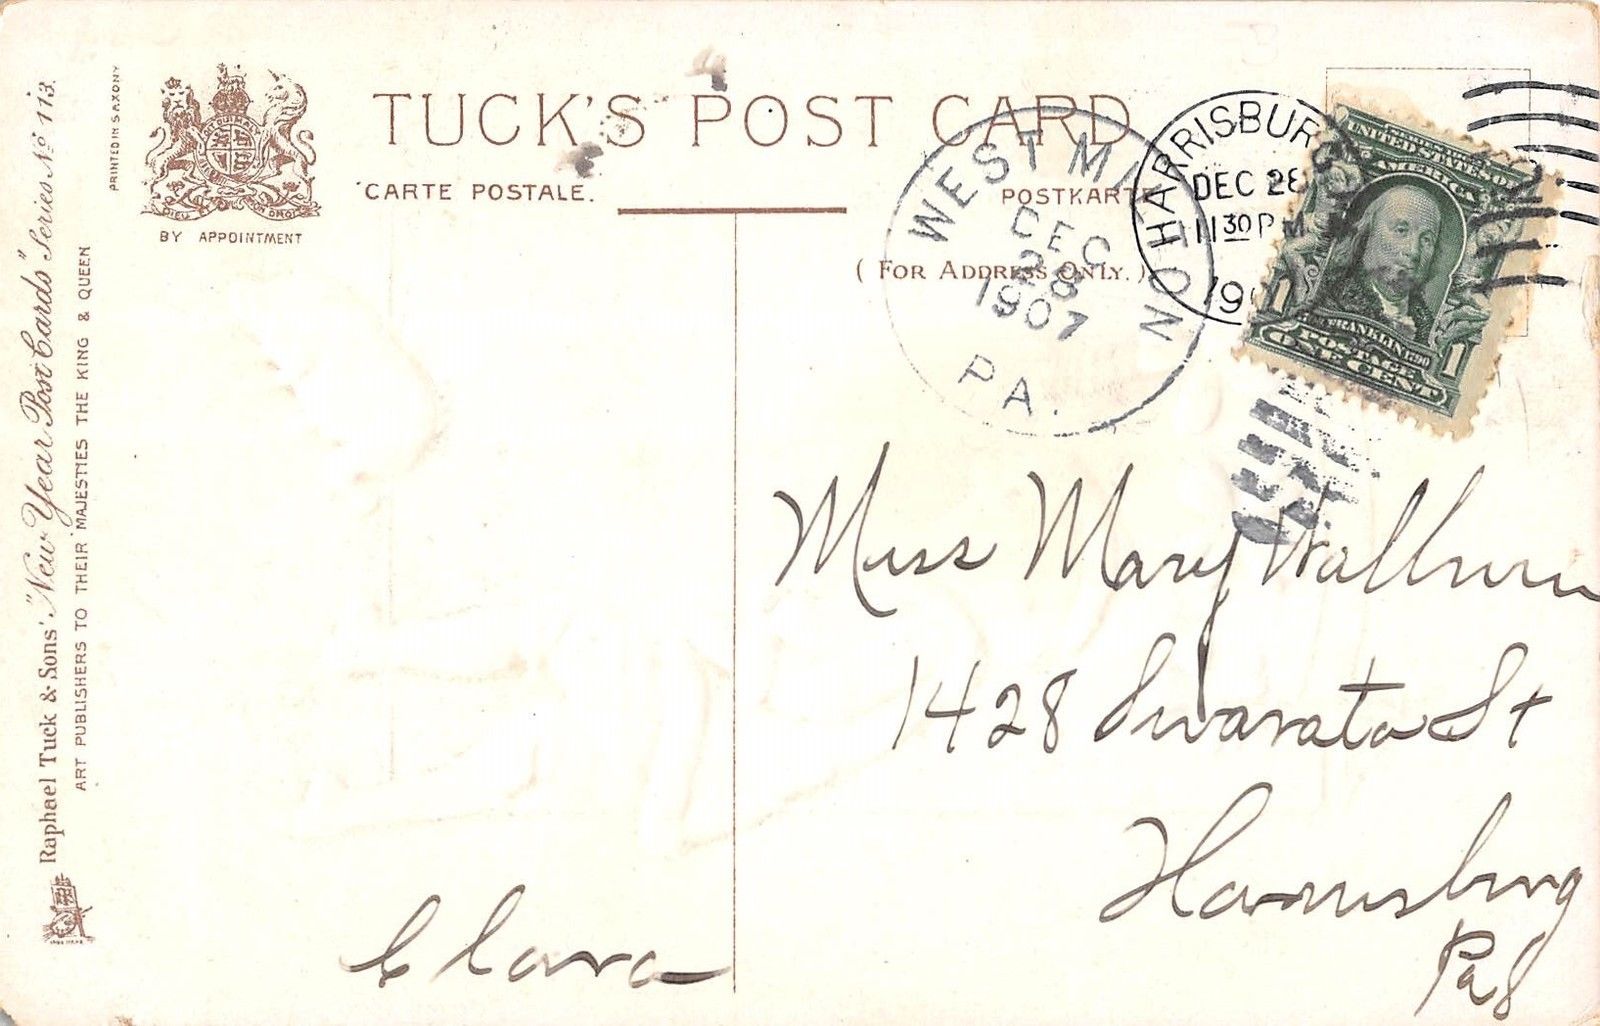 TUCK'S POST CARD
CARTE POSTALE.
POSTKARTE
( FOR ADDRESS ONLY. )
BY APPOINTMENT
PRINTED IN SAXONY
Raphael Tuck & Sons' "New Year Post Cards" Series No 113.
ART PUBLISHERS TO THEIR MAJESTIES THE KING & QUEEN
WESTMINTON
DEC
28
1907
PA.
HARRISBURG
DEC 28
11 30 PM
190
UNITED STATES OF
AMERICA
FRANKLIN
POSTAGE
1 1
ONE CENT
Miss Mary
1428 Swarata St
Harrisburg
Pa
Clara